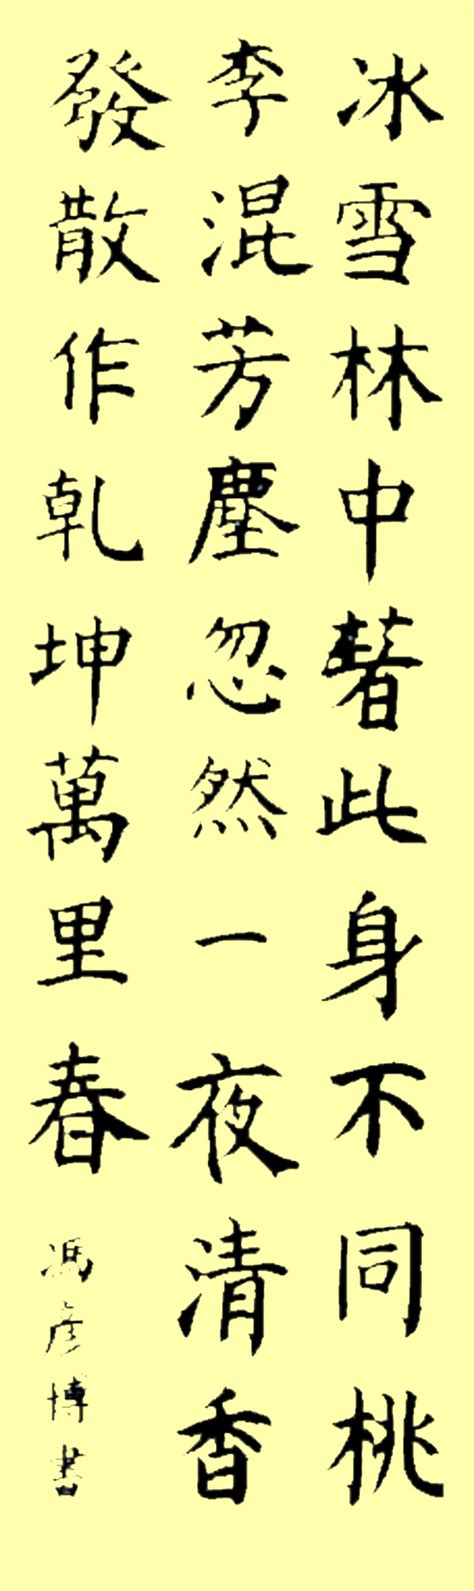 冰雪林中著此身不同桃
李混芳塵忽然一夜清香
發散作乾坤萬里春
馮彦博書